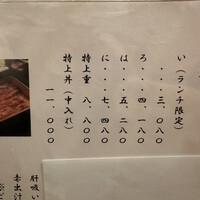 い（ランチ限定）
・・・三、〇八〇
ろ・・・四、一八〇
は・・・五、二八〇
に・・・七、四八〇
特上重　八、八〇〇
特上丼（中入れ）
一一、〇〇〇
肝吸い
赤出汁